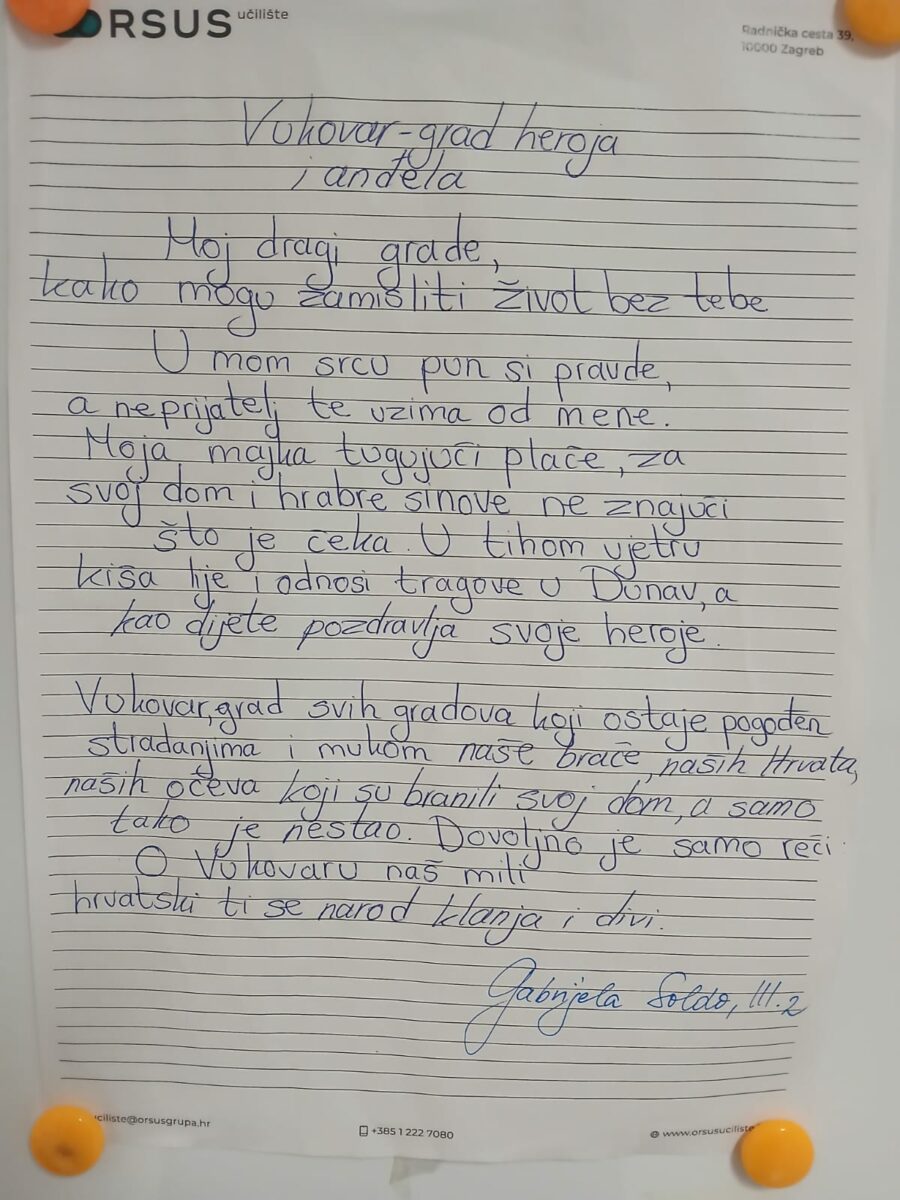 ORSUS učilište
Radnička cesta 39,
10000 Zagreb
Vukovar-grad heroja
i anđela
Moj dragi grade,
kako mogu zamisliti život bez tebe
U mom srcu pun si pravde,
a neprijatelj te uzima od mene.
Moja majka tugujući plače, za
svoj dom i hrabre sinove ne znajući
što je čeka. U tihom vjetru
kiša lije i odnosi tragove u Dunav, a
kao dijete pozdravlja svoje heroje.
Vukovar, grad svih gradova koji ostaje pogođen
stradanjima i mukom naše braće, naših Hrvata,
naših očeva koji su branili svoj dom, a samo
tako je nestao. Dovoljno je samo reći:
O Vukovaru naš mili
hrvatski ti se narod klanja i divi.
Gabrijela Soldo, III.2
uciliste@orsusgrupa.hr
+385 1 222 7080
www.orsusuciliste